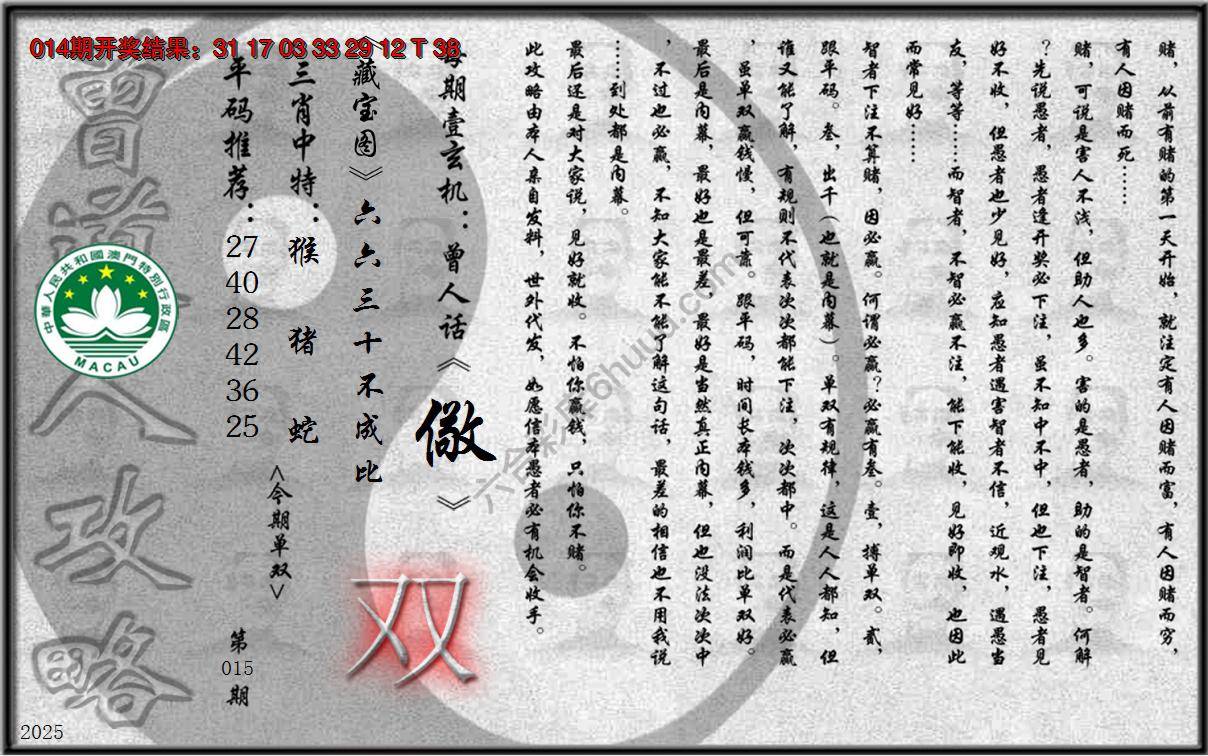 014期开奖结果：31 17 03 33 29 12 T 38
赌，从前有赌的第一天开始，就注定有人因赌而富，有人因赌而穷，
有人因赌而死……
赌，可说是害人不浅，但助人也多。害的是愚者，助的是智者。何解
？先说愚者，愚者逢开奖必下注，虽不知中不中，但也下注，愚者见
好不收，但愚者也少见好，应知愚者遇害智者不信，近观水，遇愚当
友，等等……而智者，不智必赢不注，能下能收，见好即收，也因此
而常见好……
智者下注不算赌，因必赢。何谓必赢？必赢有叁。壹，搏单双。贰，
跟平码。叁，出千（也就是内幕）。单双有规律，这是人人都知，但
谁又能了解，有规则不代表次次都能下注，次次都中。而是代表必赢
，虽单双赢钱慢，但可靠。跟平码，时间长本钱多，利润比单双好。
最后是内幕，最好也是最差，最好是当然真正内幕，但也没法次次中
，不过也必赢，不知大家能不能了解这句话，最差的相信也不用我说
……到处都是内幕。
最后还是对大家说，见好就收。不怕你赢钱，只怕你不赌。
此攻略由本人亲自发料，世外代发，如愿信本愚者必有机会收手。
每期壹玄机：曾人话《儆》
《藏宝图》六六三十不成比
双
三肖中特：猴 猪 蛇
<今期单双>
平码推荐：27 40 28 42 36 25
第015期
曾道人攻略
中華人民共和國澳門特別行政區
MACAU
六合彩库6huuu.com
2025